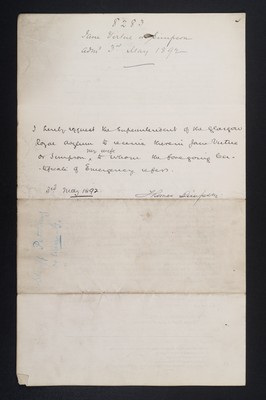 8283
Jane Virtue or Simpson
adm. 3rd May 1892
I hereby request the Superintendent of the Glasgow
Royal Asylum to receive therein Jane Virtue
my wife
or Simpson, to whom the foregoing Cer-
-tificate of Emergency refers.
3rd May 1892
Simpson